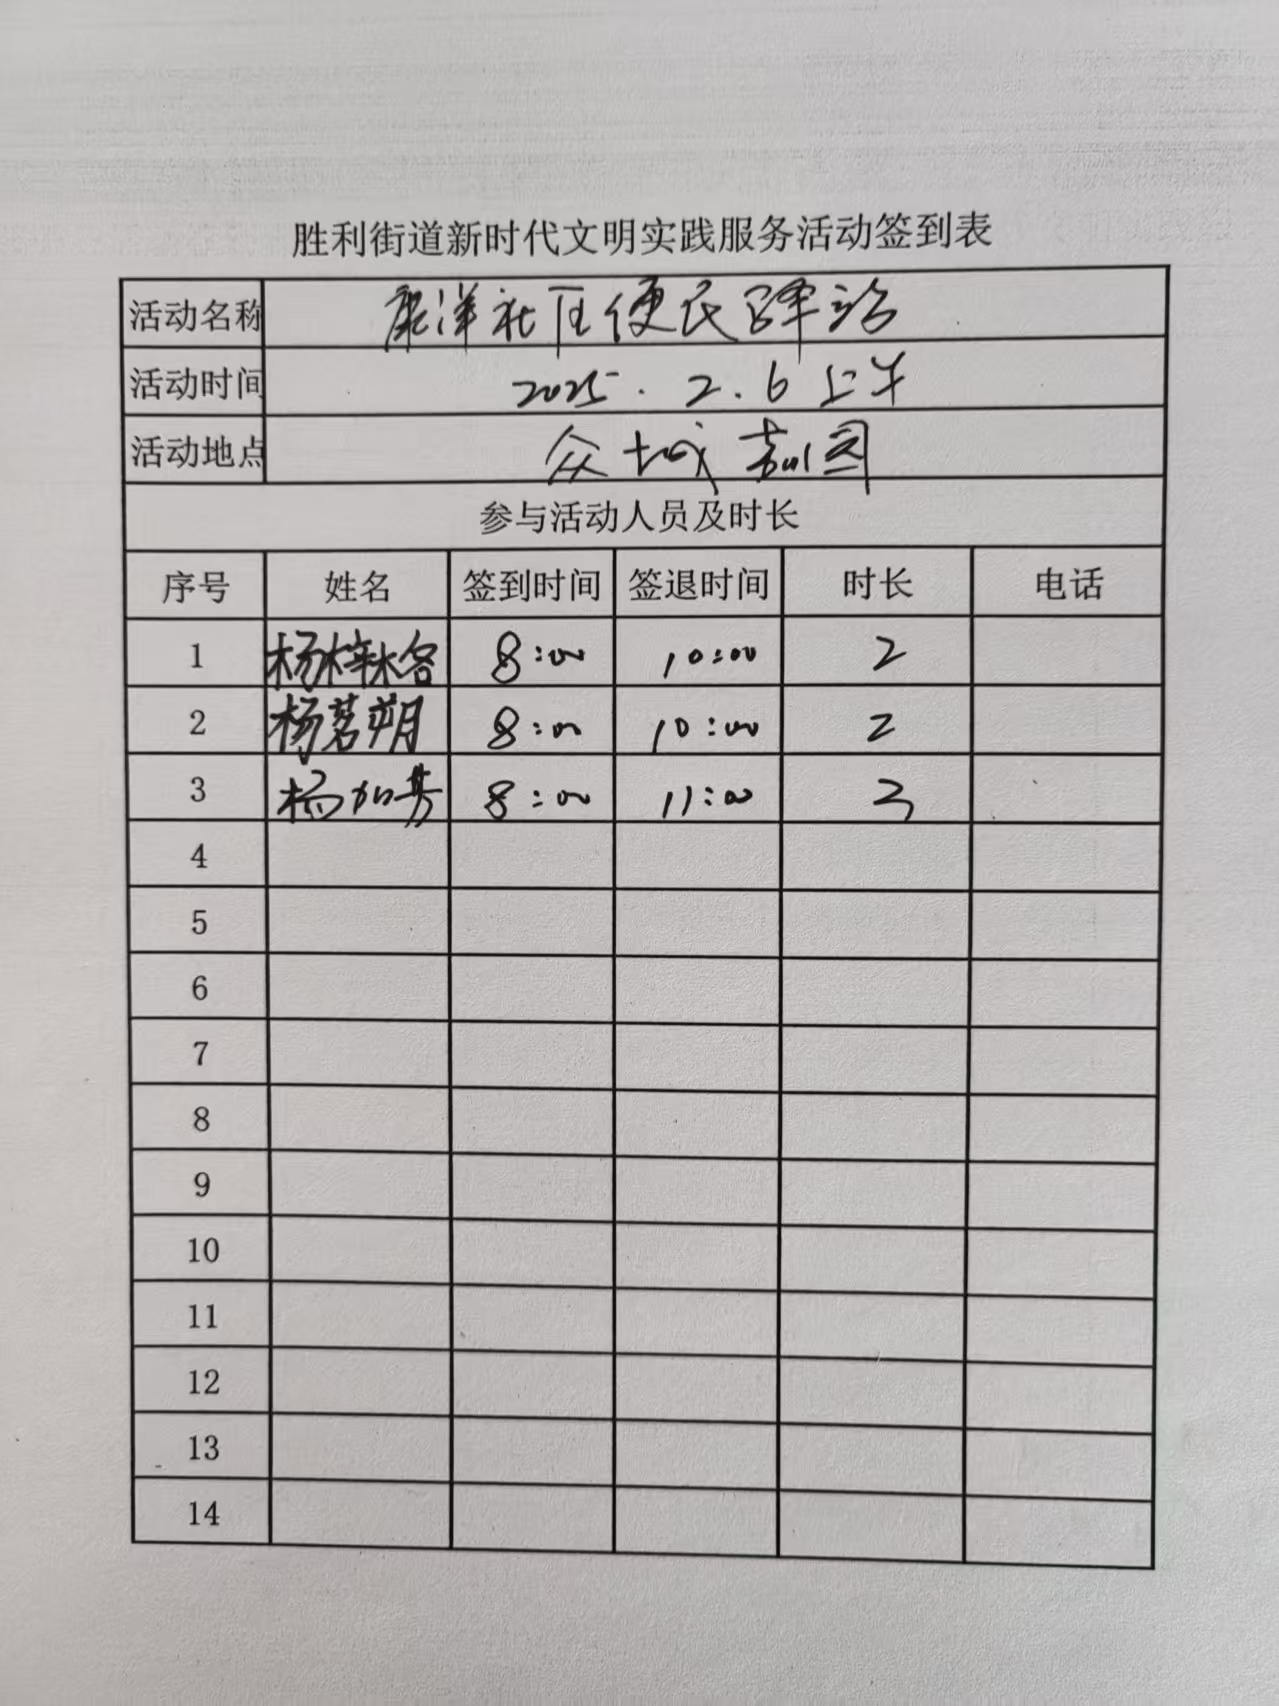 胜利街道新时代文明实践服务活动签到表
活动名称 康洋社区便民驿站
活动时间 2025.2.6上午
活动地点 众城嘉园
参与活动人员及时长
序号 姓名 签到时间 签退时间 时长 电话
1 杨梓榕 8:00 10:00 2
2 杨茗朔 8:00 10:00 2
3 杨加芳 8:00 11:00 3
4
5
6
7
8
9
10
11
12
13
14